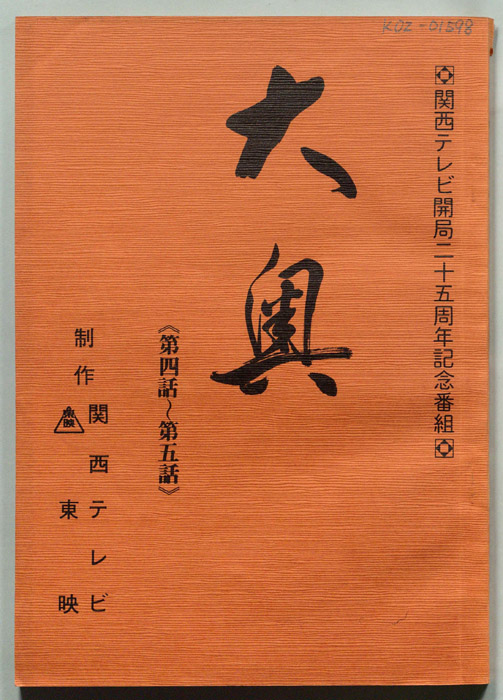 KOZ-01598
関西テレビ開局二十五周年記念番組
大奥
《第四話～第五話》
制作
関西テレビ
東映
東映